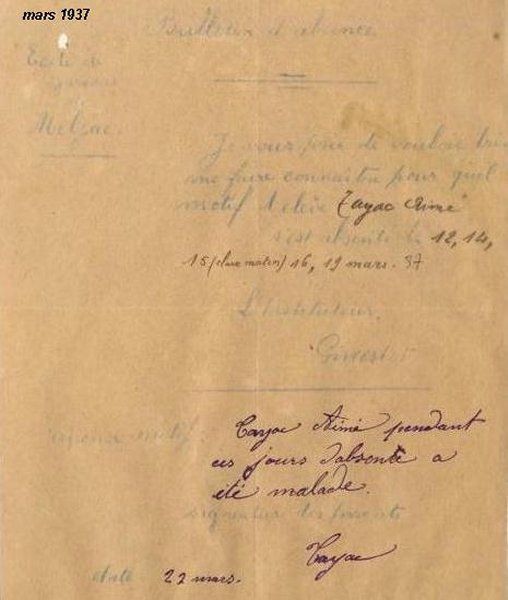 mars 1937
Bulletin d'absence
Ecole de
garçons
Melzac.
Je vous prie de vouloir bien
me faire connaître pour quel
motif l'élève Tayac Aimé
s'est absenté les 12, 14,
15 (classe matin) 16, 19 mars. 37
L'Instituteur,
Réponse motif:
Tayac Aimé pendant
ces jours d'absence a
été malade.
signature des parents
Tayac
date 22 mars.